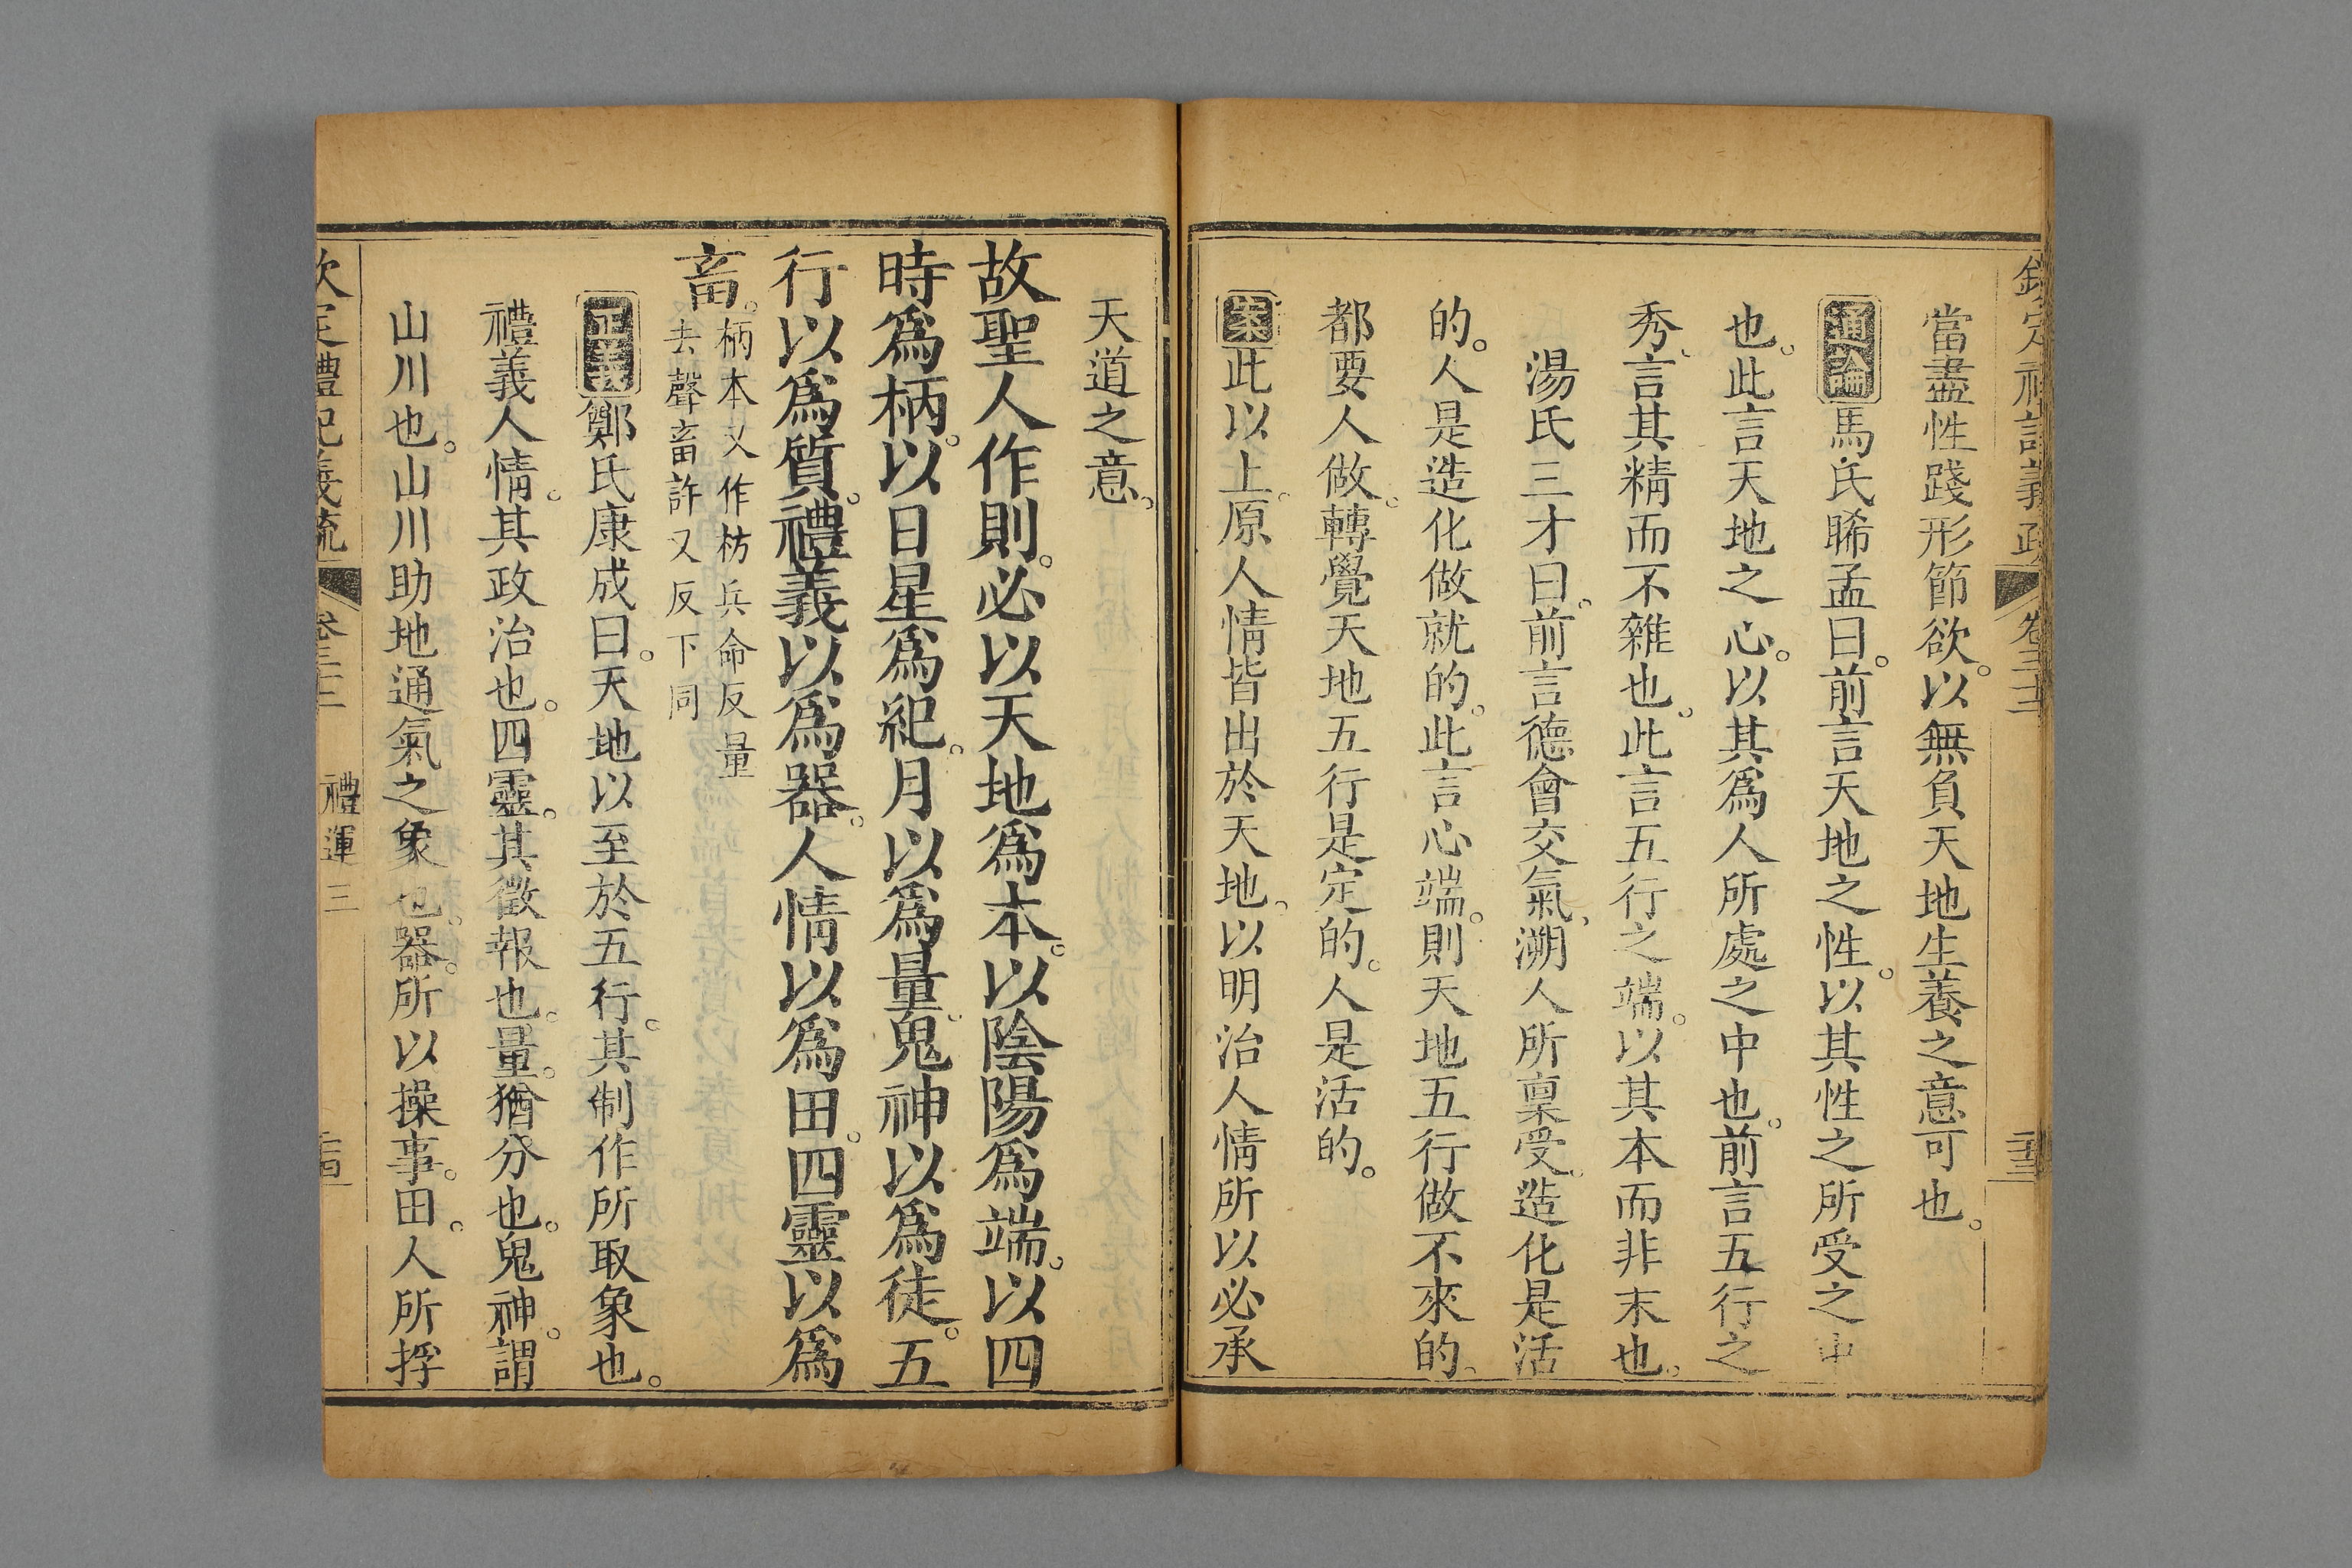 當盡性踐形節欲。以無負天地生養之意可也。
通論馬氏睎孟曰。前言天地之性。以其性之所受之中
也。此言天地之心。以其爲人所處之中也。前言五行之
秀、言其精而不雜也。此言五行之端。以其本而非末也。
湯氏三才曰。前言德會交氣、溯人所稟受、造化是活
的。人是造化做就的。此言心端。則天地五行做不來的。
都要人做。轉覺天地五行是定的。人是活的。
案此以上。原人情皆出於天地。以明治人情所以必承
天道之意。
故聖人作則。必以天地爲本。以陰陽爲端。以四
時爲柄。以日星爲紀。月以爲量。鬼神以爲徒。五
行以爲質。禮義以爲器。人情以爲田。四靈以爲
畜。柄本又作枋兵命反量
去聲畜許又反下同
正義鄭氏康成曰。天地以至於五行。其制作所取象也。
禮義人情。其政治也。四靈。其徵報也。量。猶分也。鬼神。謂
山川也。山川助地通氣之象也。器。所以操事。田。人所捊
禮運三